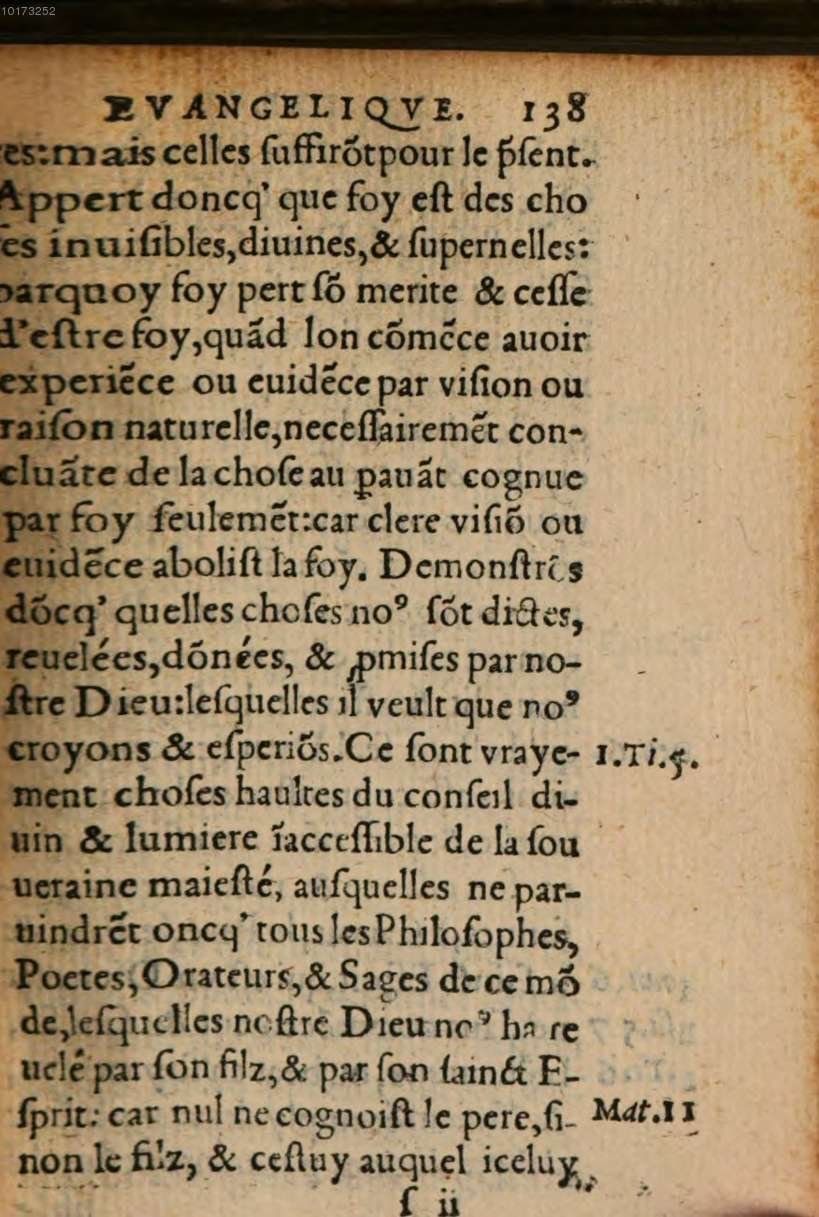 10173252
EVANGELIQVE. 138
es:mais celles ſuffirõt pour le p̃ſent.
Appert doncq’ que foy eſt des cho
es inuiſibles,diuines,& ſupernelles:
parquoy foy pert ſõ merite & ceſſe
d’eſtre foy,quãd lon cõmẽce auoir
experiẽce ou euidẽce par viſion ou
raiſon naturelle,neceſſairemẽt con-
cluãte de la choſe au ꝑauãt cognue
par foy ſeulemẽt:car clere viſiõ ou
euidẽce aboliſt la foy. Demonſtrẽs
dõcq’ quelles choſes noꝰ ſõt dictes,
reuelées,dõnées, & ꝓmiſes par no-
ſtre Dieu:leſquelles il veult que noꝰ
croyons & eſperiõs.Ce ſont vraye- 1.Ti.5.
ment choſes haultes du conſeil di-
uin & lumiere ĩacceſſible de la ſou
ueraine maieſté, auſquelles ne par-
uindrẽt oncq’ tous les Philoſophes,
Poetes,Orateurs,& Sages de ce mõ
de,leſquelles noſtre Dieu noꝰ ha re
uelé par ſon filz,& par ſon ſainct E-
ſprit: car nul ne cognoiſt le pere,ſi- Mat.11
non le filz, & ceſtuy auquel iceluy
ſ ii